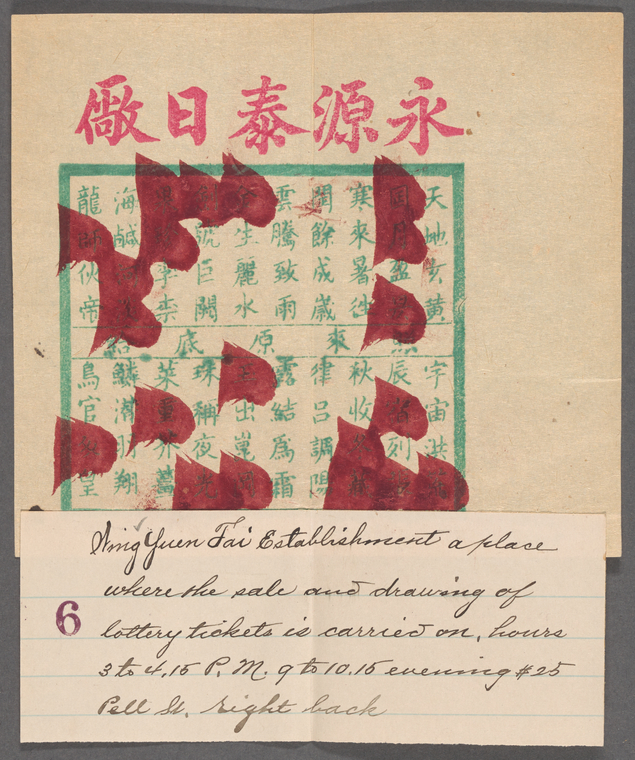 永源泰日廠
天地玄黃
盈
寒來暑往
閏餘成歲
雲騰致雨
生麗水
號巨闕
李柰
海鹹
龍師伙帝
來原底
宇宙洪荒
辰宿列
秋收冬藏
律呂調陽
露結為霜
出崑
珠稱夜光
菜重芥薑
鱗潛羽翔
鳥官皇
6
Wing Yuen Tai Establishment a place
where the sale and drawing of
lottery tickets is carried on, hours
3 to 4,15 P.M. 9 to 10.15 evening #25
Pell St. right back